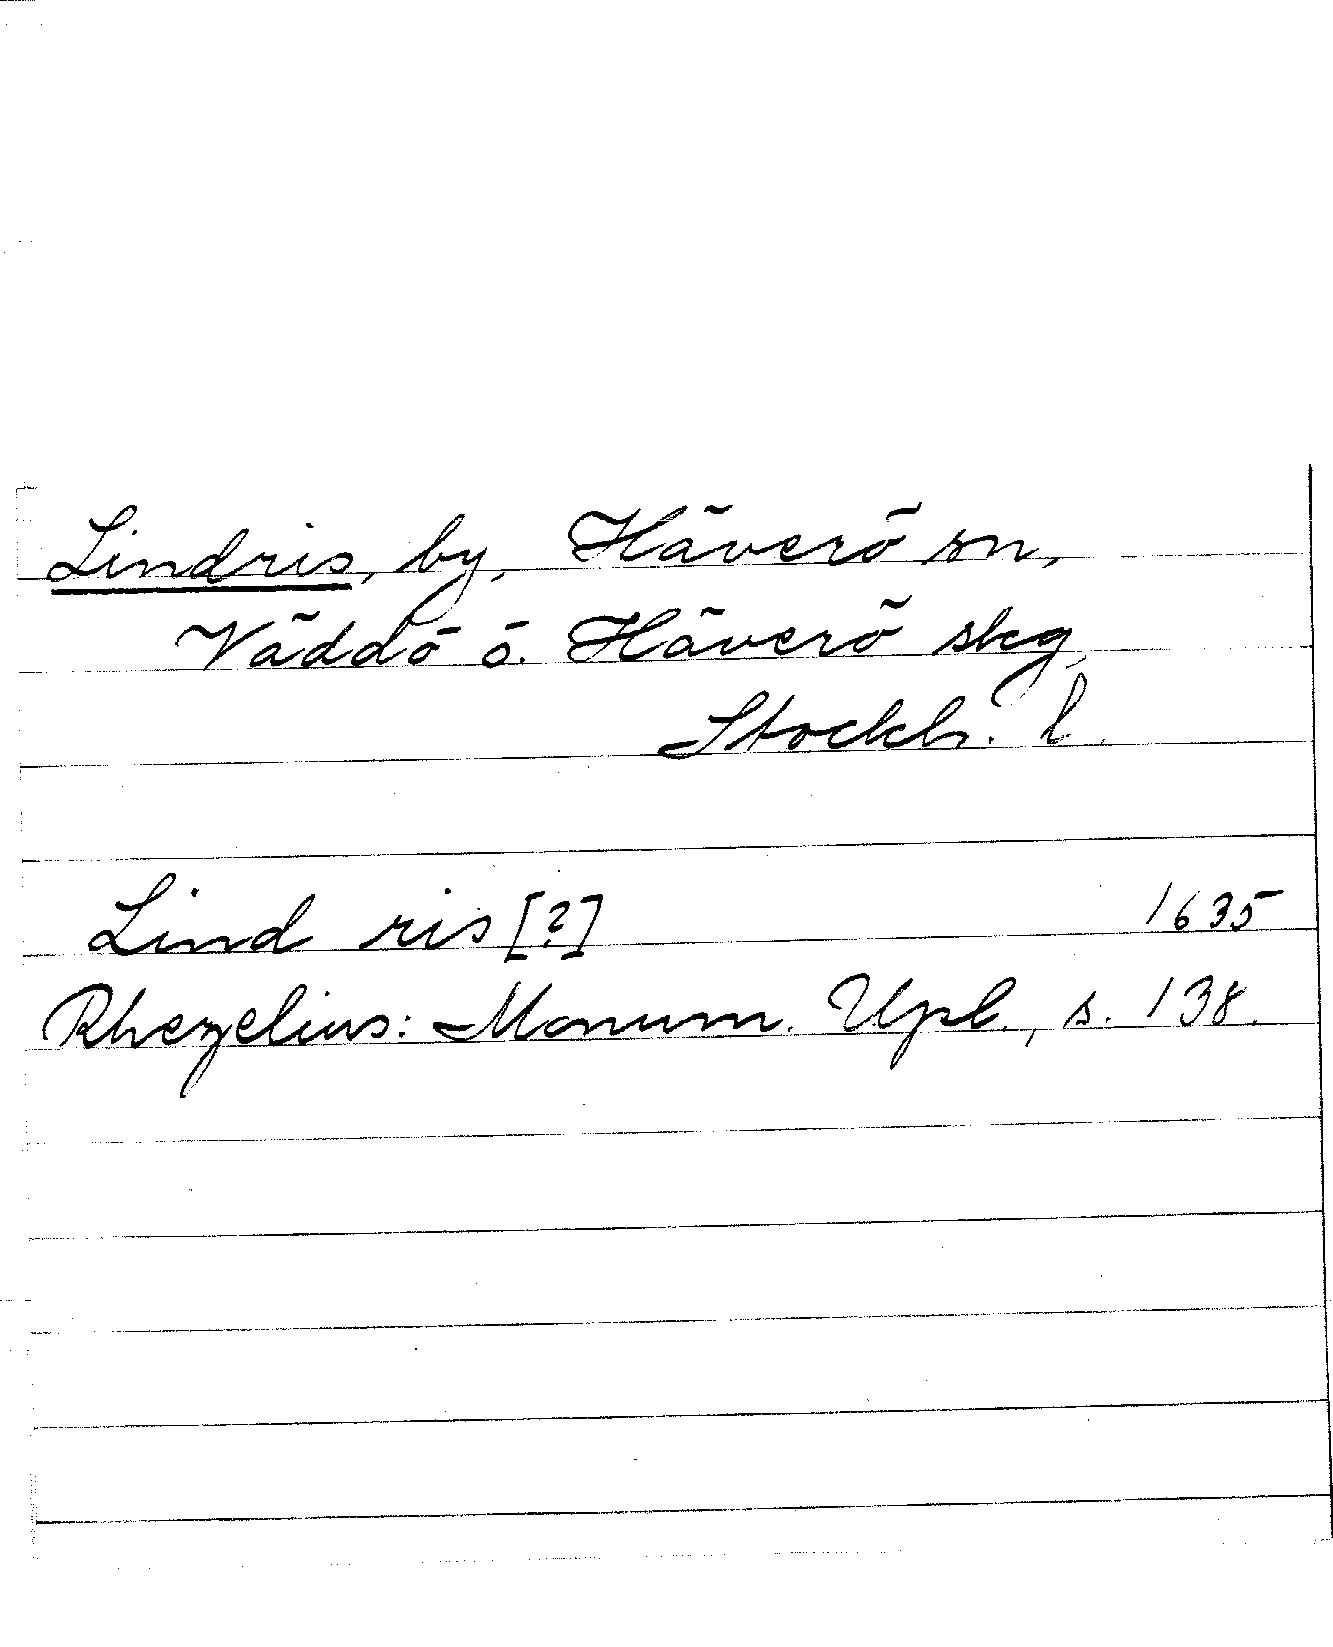 Lindris, by, Häverö sn,
Väddö o. Häverö skg
Stockh. l.
Lind ris [?] 1635
Rhezelius: Monum. Upl., s. 138.